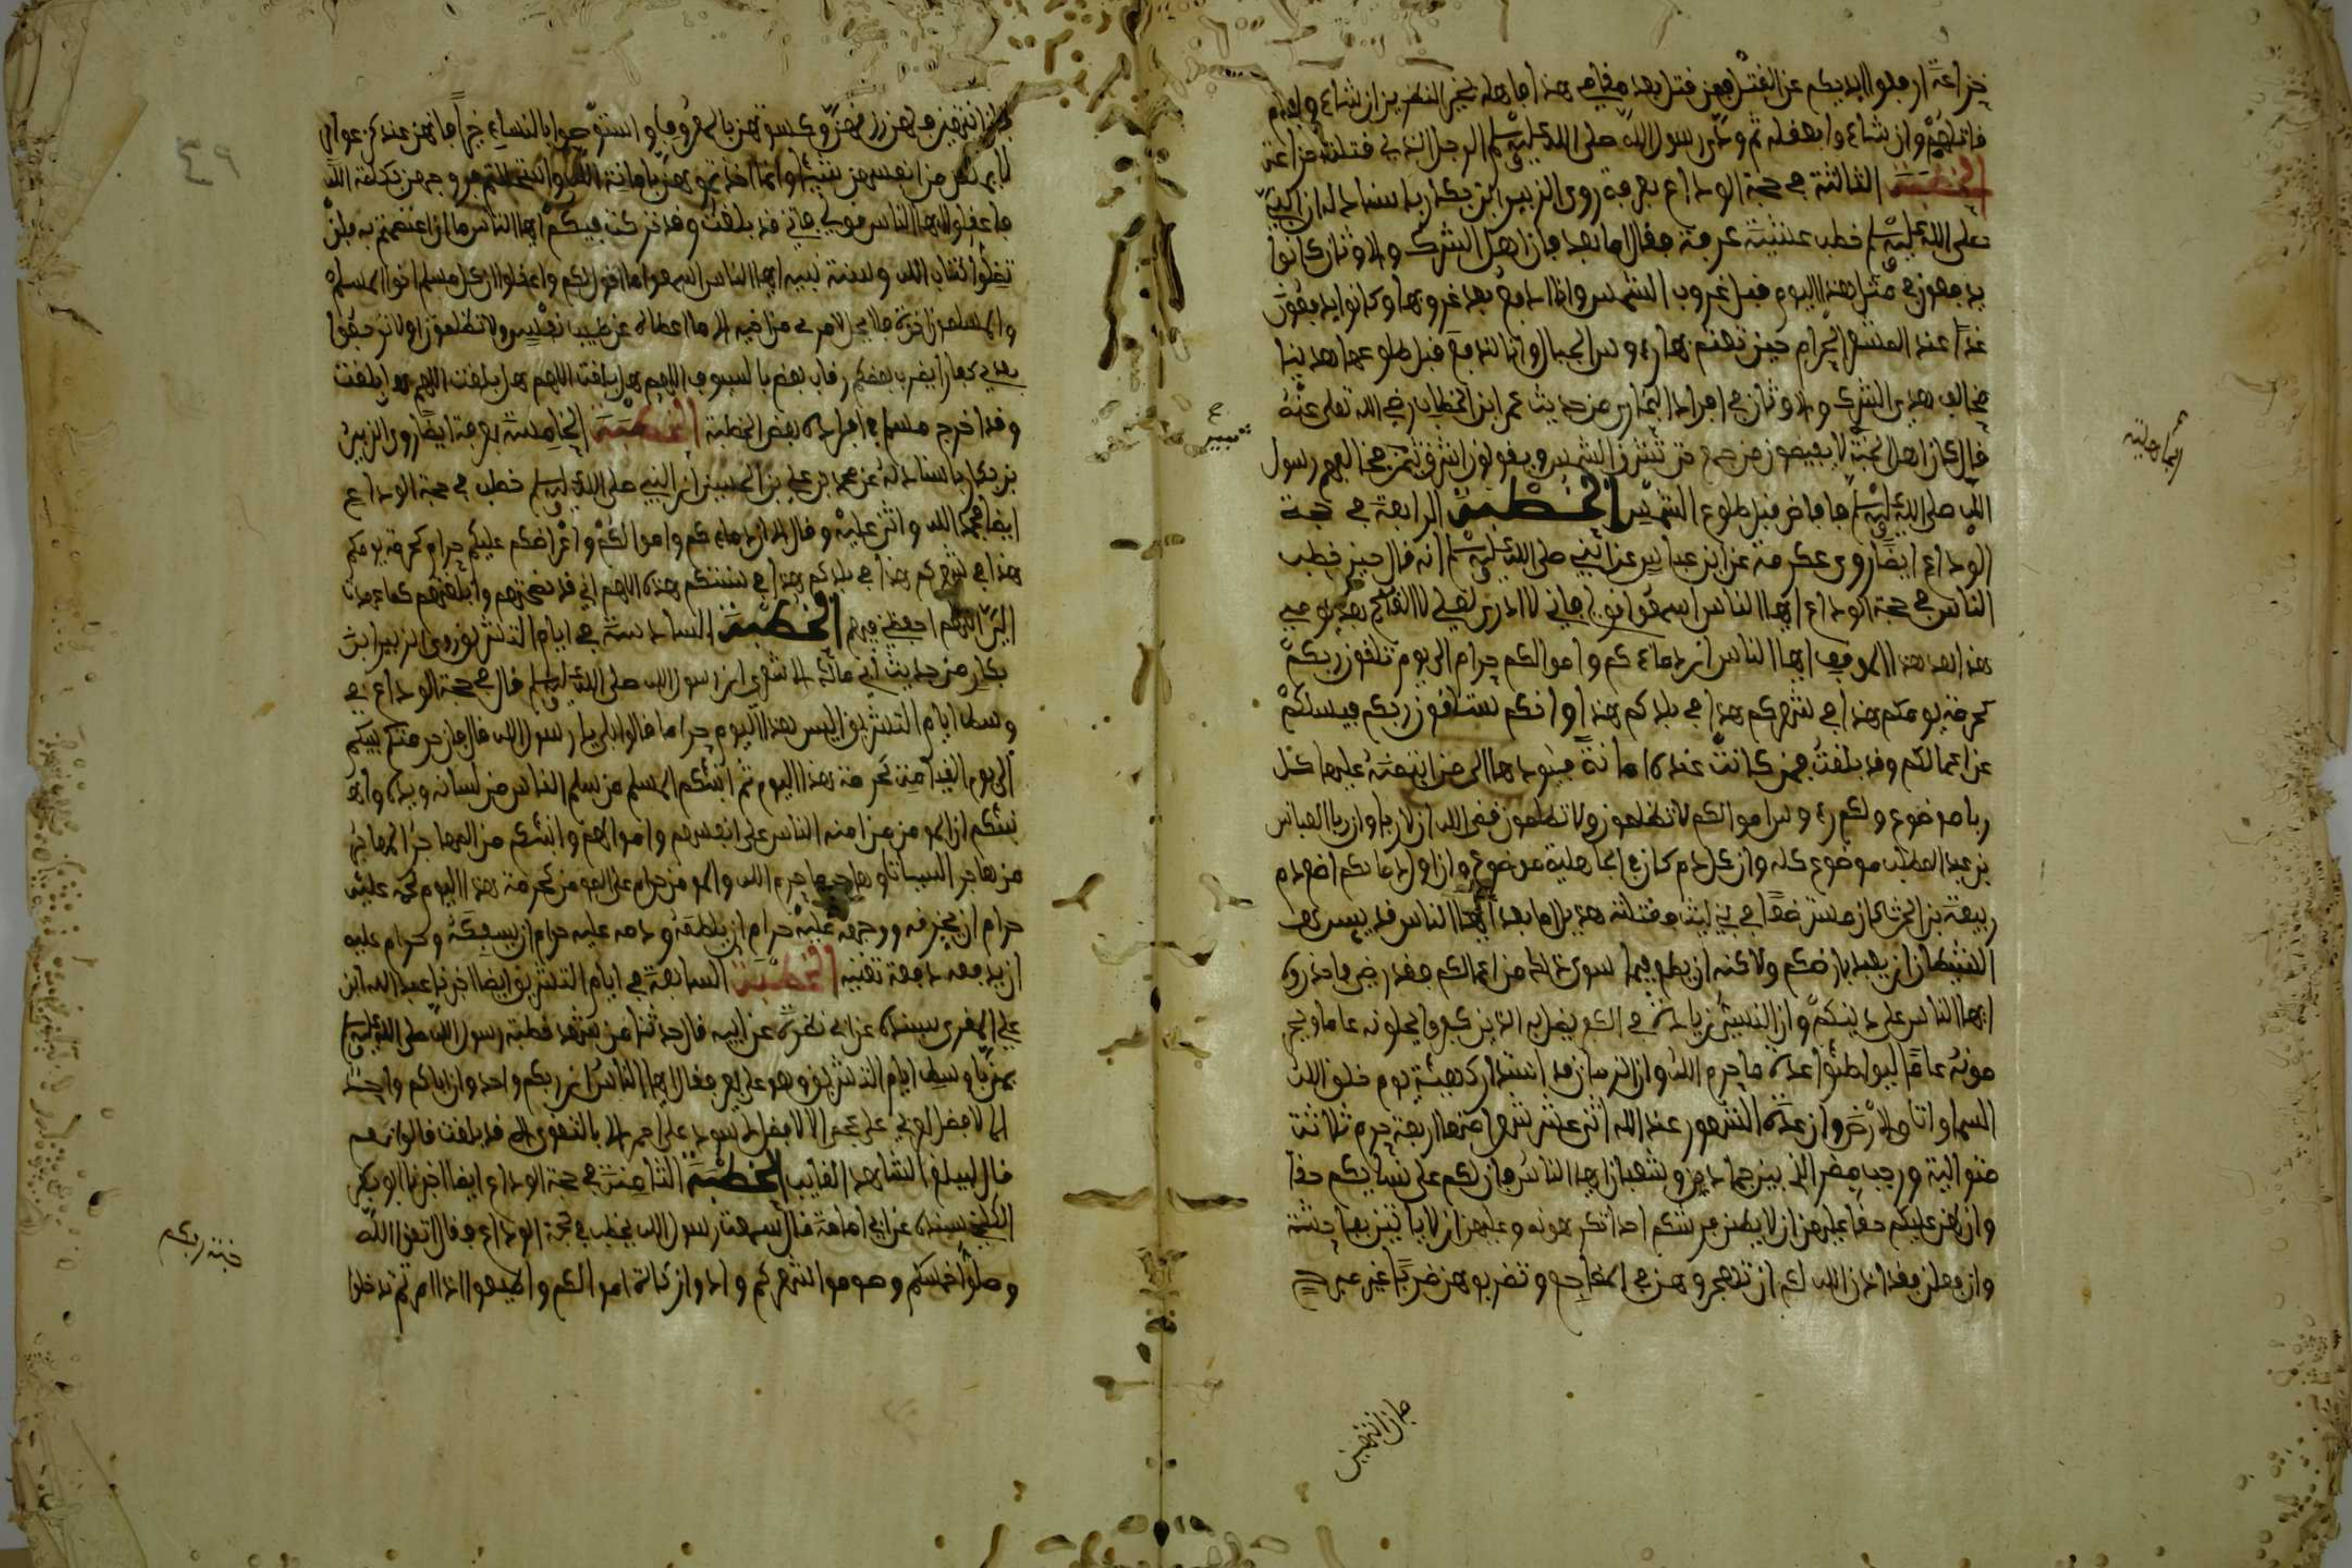 خزاعة ارفعوا ايديكم عن القتل فمن قتل بعد مقامي هذا فاهله بخير النظرين ان شاءوا فدم
قاتلهم وان شاءوا بعقله ثم ودى رسول الله صلى الله عليه وسلم الرجل الذي قتلته خزاعة
الخطبة الثالثة في حجة الوداع بعرفة روى الزبير ابن بكار باسناد له ان النبي
صلى الله عليه وسلم خطب عشية عرفة فقال اما بعد فان اهل الشرك والاوثان كانوا
يدفعون في مثل هذا اليوم قبل غروب الشمس وانا ندفع بعد غروبها وكانوا يدفعون
غدا عند المشعر الحرام حين تعتم بها رءوس الجبال وانا لندفع قبل طلوعها هدينا
مخالف هدي الشرك والاوثان في افراد البخاري من حديث عمر ابن الخطاب رضي الله تعلى عنه
قال كان اهل الجاهلية لا يفيضون من جمع حتى تشرق الشمس ويقولون اشرق ثبير فخالفهم رسول
الله صلى الله عليه وسلم فافاض قبل طلوع الشمس الخطبة الرابعة في حجة
الوداع ايضا روى عكرمة عن ابن عباس عن النبي صلى الله عليه وسلم انه قال حين خطب
الناس في حجة الوداع ايها الناس اسمعوا قولي فاني لا ادري لعلي لا القاكم بعد يومي
هذا بعد هذا الموقف ايها الناس ان دماءكم واموالكم حرام الى يوم تلقون ربكم
كحرمة يومكم هذا في شهركم هذا في بلدكم هذا وانكم ستلقون ربكم فيسئلكم
عن اعمالكم وقد بلغت فمن كانت عنده امانة فليودها الى من ائتمنه عليها كل
ربا موضوع ولكم رءوس اموالكم لا تظلمون ولا تظلمون قضى الله ان لا ربا وان ربا العباس
بن عبد المطلب موضوع كله وان كل دم كان في الجاهلية موضوع وان اول دمائكم اضع دم
ربيعة بن الحرث كان مسترضعا في بني ليث فقتلته هذيل اما بعد ايها الناس قد يئس
الشيطان ان يعبد بارضكم ولاكنه ان يطع فيما سوى ذلك من اعمالكم فقد رضي فاحذروه
ايها الناس على دينكم وان النسيء زيادة في الكفر يضل به الذين كفروا يحلونه عاما ويحر
مونه عاما ليواطئوا عدة ما حرم الله وان الزمان قد استدار كهيئة يوم خلق الله
السماوات والارض وان عدة الشهور عند الله اثنى عشر شهرا منها اربعة حرم ثلاثة
متوالية ورجب مضر الذي بين جمادى وشعبان ايها الناس فان لكم على نسائكم حقا
وان لهن عليكم حقا عليهن ان لا يطئن فرشكم احدا تكرهونه وعليهن ان لا ياتين بفاحشة
وان فعلن فقد اذن الله لكم ان تهجروهن في المضاجع وتضربوهن ضربا غير مبرح
فان انتهين
الجاهلية
ثبير
فان انتهين فلهن رزقهن وكسوتهن بالمعروف واستوصوا بالنساء خيرا فانهن عندكم عوان
لا يملكن من انفسهن شيئا وانما اخذتموهن بامانة الله واستحللتم فروجهن بكلمة الله
فاعقلوا ايها الناس قولي فاني قد بلغت وقد تركت فيكم ايها الناس ما ان اعتصمتم به فلن
تضلوا كتاب الله وسنة نبيه ايها الناس اسمعوا ما اقول لكم واعقلوا ان كل مسلم اخو المسلم
والمسلمون اخوة فلا يحل لامرئ من اخيه الا ما اعطاه عن طيب نفس ولا تظلمون ولا ترجعوا
بعدي كفارا يضرب بعضكم رقاب بعض بالسيوف اللهم هل بلغت اللهم هل بلغت اللهم هل بلغت
وقد اخرج مسلم في افراده بعض الخطبة الخطبة الخامسة بعرفة ايضا روى الزبير
بن بكار باسناد له عن محمد بن علي بن الحسين ان النبي صلى الله عليه وسلم خطب في حجة الوداع
ايضا فحمد الله واثنى عليه وقال الا ان دماءكم واموالكم واعراضكم عليكم حرام كحرمة يومكم
هذا في شهركم هذا في بلدكم هذا في سنتكم هذه اللهم اني قد نصحتهم وابلغتهم كما عهدت
الي اللهم احفظني فيهم الخطبة السادسة في ايام التشريق روى الزبير ابن
بكار من حديث ابي مالك الاشعري ان رسول الله صلى الله عليه وسلم قال في حجة الوداع في
وسط ايام التشريق اليس هذا اليوم حراما قالوا بلى يا رسول الله قال فان حرمتكم بينكم
الى يوم القيامة كحرمة هذا اليوم ثم انبئكم المسلم من سلم الناس من لسانه ويده وا
نبئكم ان المومن من امنه الناس على انفسهم واموالهم وانبئكم من المهاجر المهاجر
من هاجر السيئات وهاجر ما حرم الله والمومن حرام على المومن كحرمة هذا اليوم لحمه عليه
حرام ان يخرقه ووجهه عليه حرام ان يلطمه ودمه عليه حرام ان يسفكه وحرام عليه
ان يدفعه دفعة تعنيه الخطبة السابعة في ايام التشريق ايضا اخبرنا عبد الله ابن
علي المقري بسنده عن ابي نضرة عن ابيه قال حدثنا من شهد خطبة رسول الله صلى الله عليه وسلم
بمنى في وسط ايام التشريق وهو على بعير فقال ايها الناس ان ربكم واحد وان اباكم واحد
الا لا فضل لعربي على عجمي الا لا فضل لاسود على احمر الا بالتقوى الا قد بلغت قالوا نعم
قال ليبلغ الشاهد الغايب الخطبة الثامنة في حجة الوداع ايضا اخبرنا ابو بكر
بسنده عن ابي امامة قال سمعت رسول الله يخطب في حجة الوداع فقال اتقوا الله
وصلوا خمسكم وصوموا شهركم وادوا زكاة اموالكم واطيعوا اذا امرتم تدخلوا
جنة ربكم
٤٩